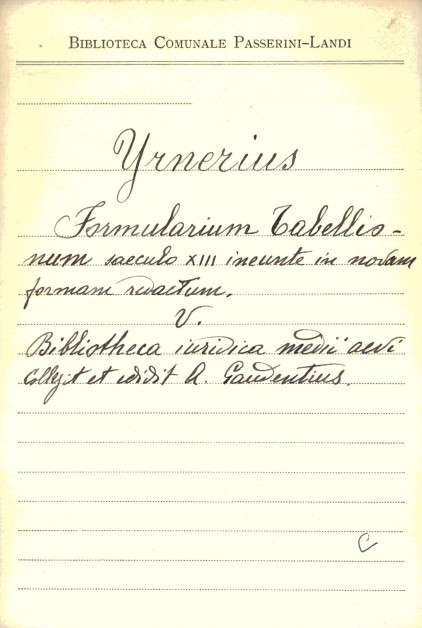 BIBLIOTECA COMUNALE PASSERINI-LANDI
Yrnerius
Formularium Tabellio-
num saeculo XIII ineunte in novam
formam redactum.
V.
Bibliotheca iuridica medii aevi
Collegit et edidit A. Gaudentius.
C